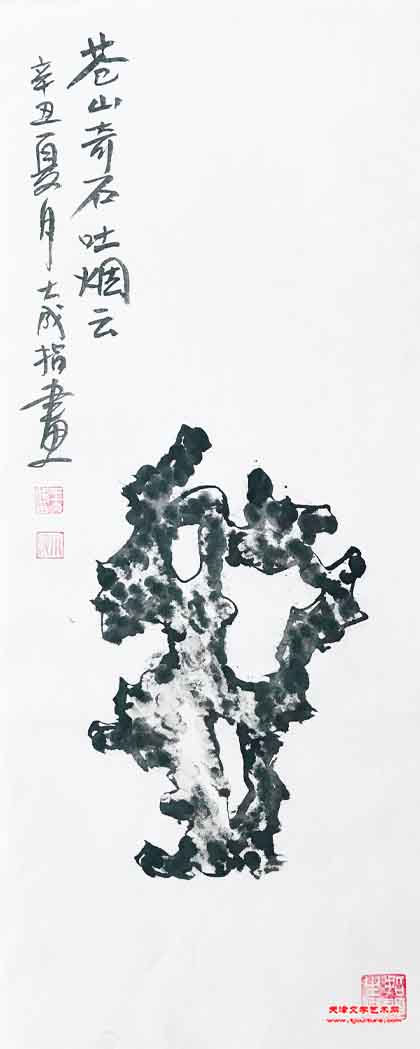 苍山奇石吐烟云
辛丑夏月大成指画
天津文学艺术网
www.tjculture.com